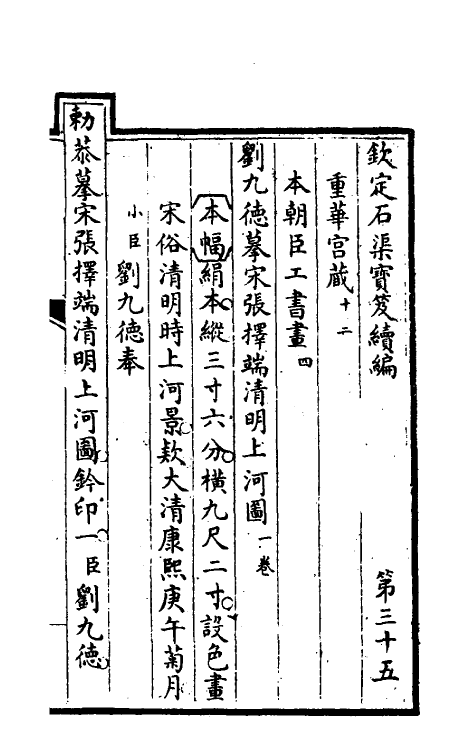 欽定石渠寶笈續編 第三十五
重華宮藏十二
本朝臣工書畫四
劉九德摹宋張擇端清明上河圖一卷
本幅絹本縱三寸六分橫九尺二寸設色畫
宋俗清明時上河景欵大清康熙庚午菊月
小臣劉九德奉
勅恭摹宋張擇端清明上河圖鈐印一臣劉九德